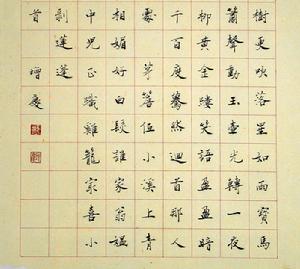 樹更吹落星如雨寶馬
簫聲動玉壺光轉一夜
柳黃金縷笑語盈盈暗
千百度驀然迴首那人
處 茅簷低小溪上青
相媚好白髮誰家翁媼
中兒正織雞籠冣喜小
剝蓮蓬
首 增慶